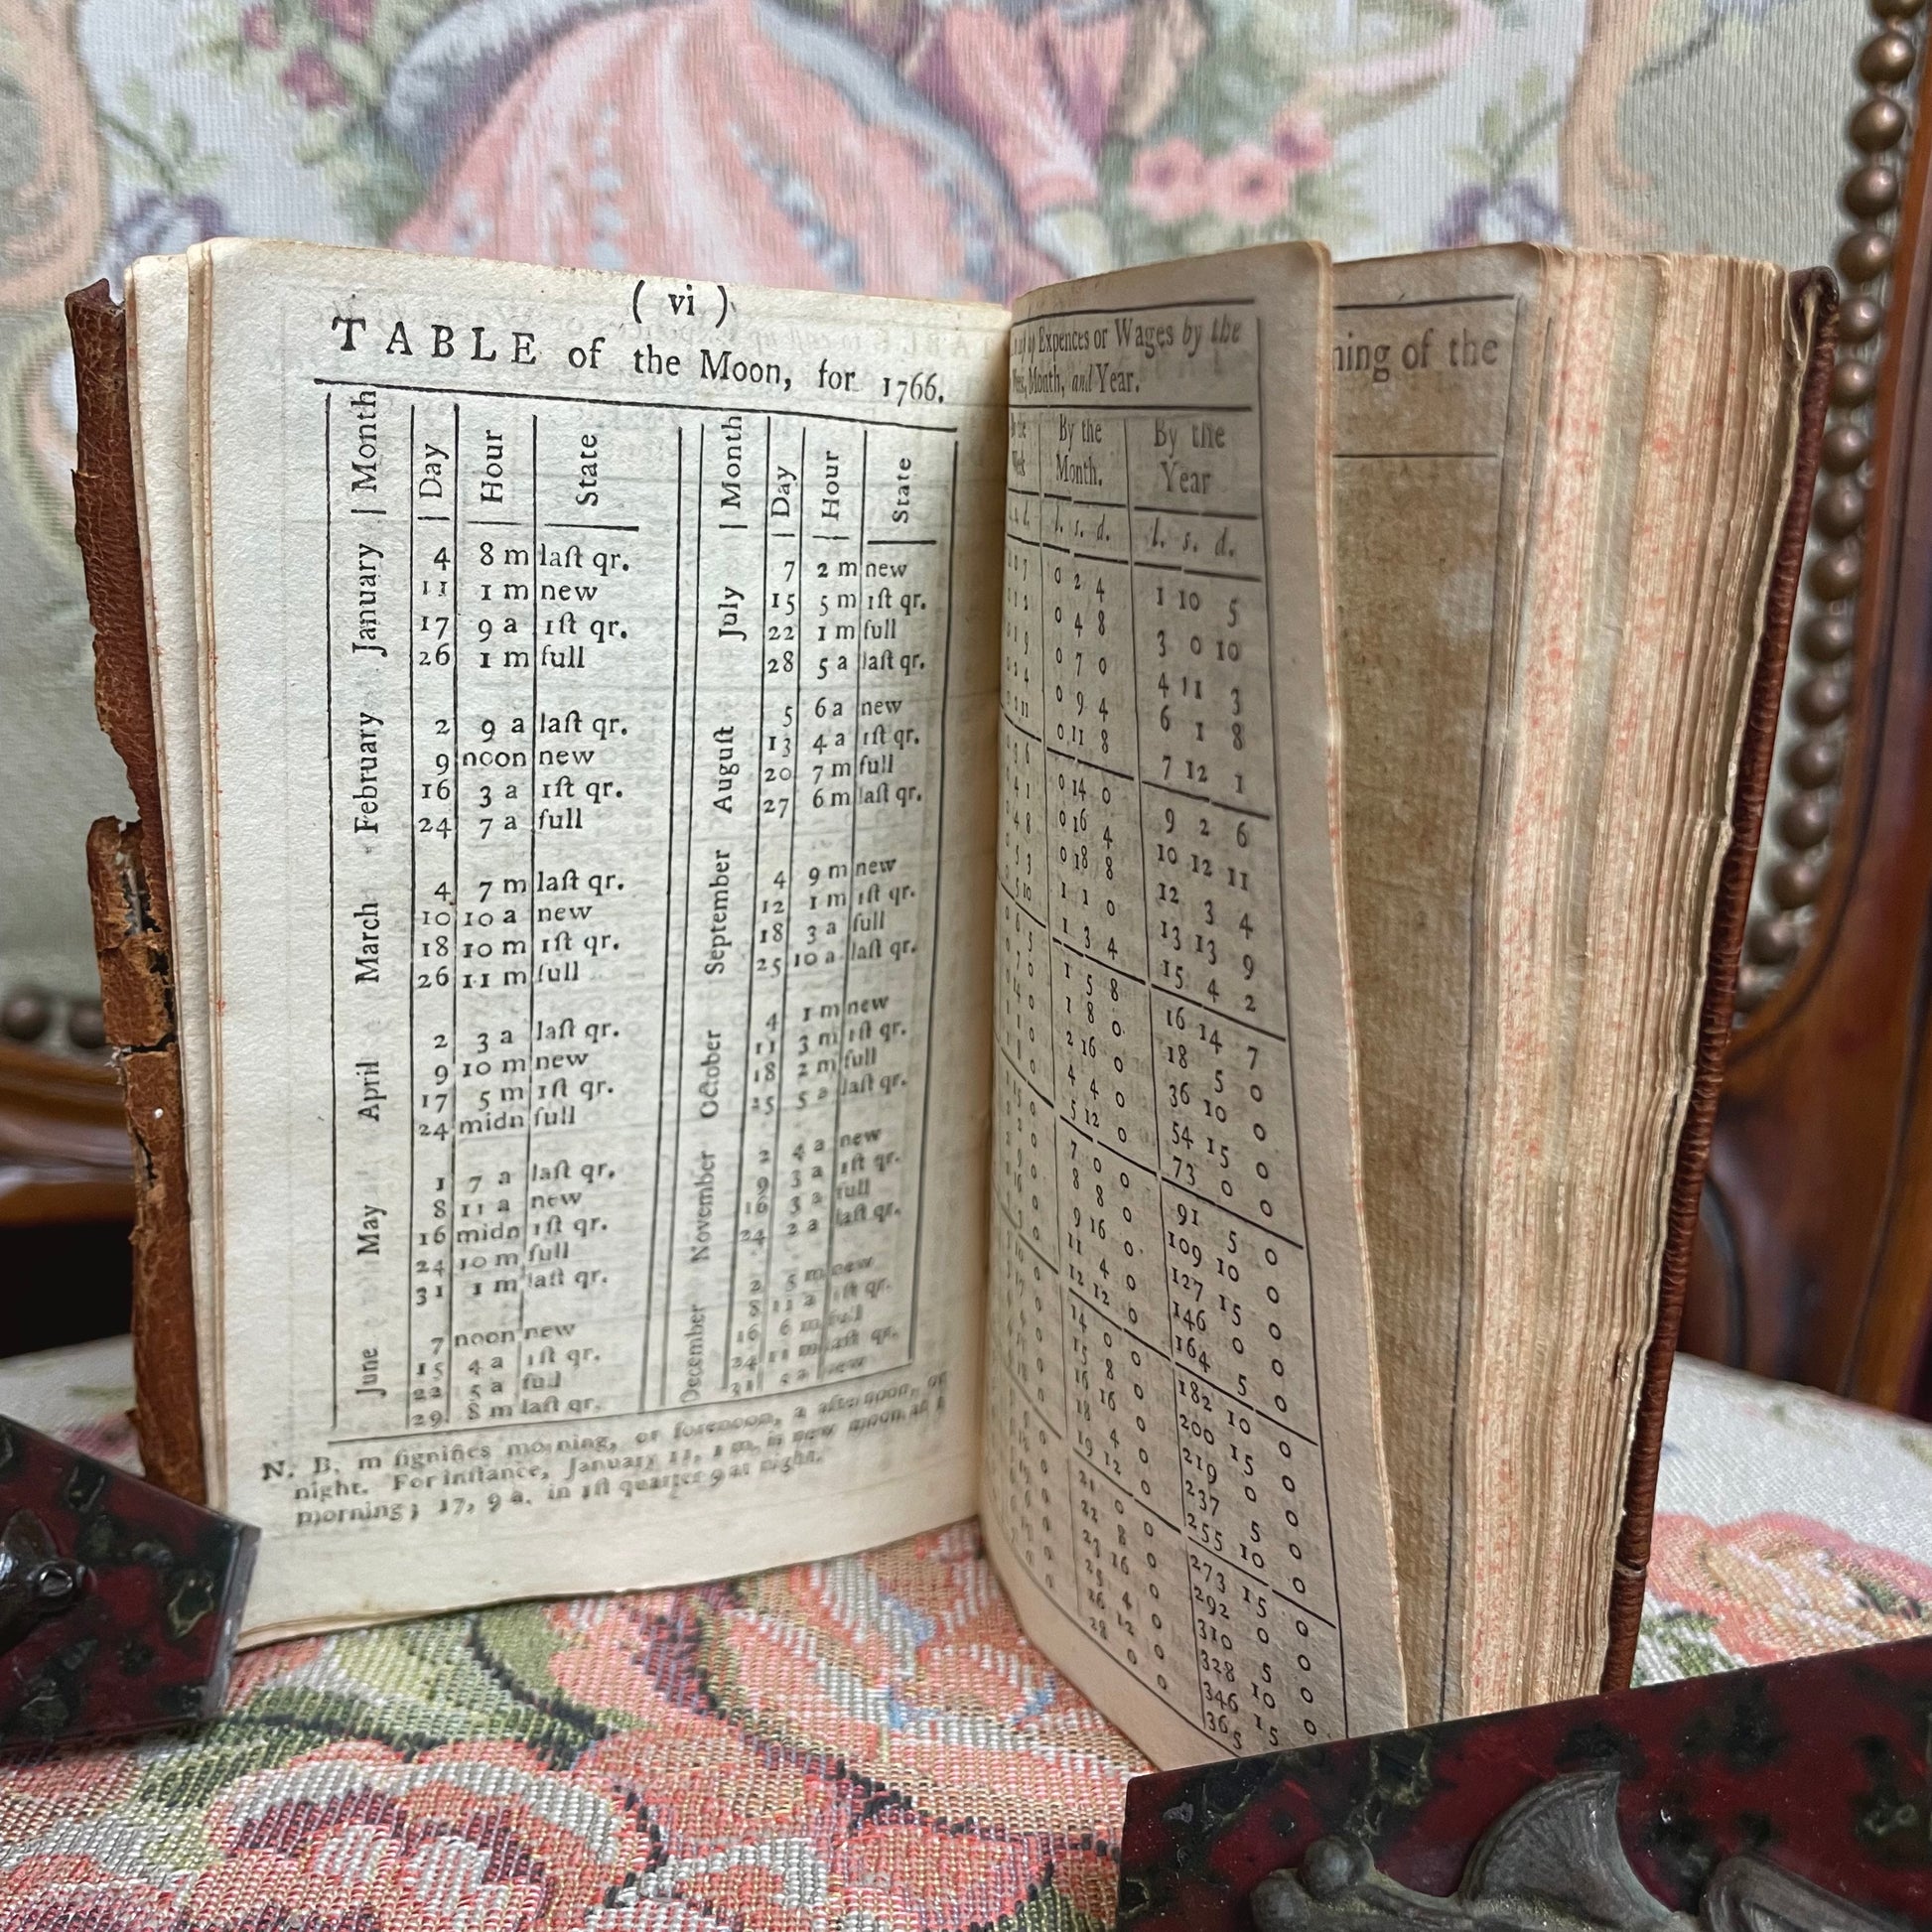 ( vi )
TABLE of the Moon, for 1766.
Month Day Hour State
January
4 8 m laſt qr.
11 1 m new
17 9 a 1ſt qr.
26 1 m full
February
2 9 a laſt qr.
9 noon new
16 3 a 1ſt qr.
24 7 a full
March
4 7 m laſt qr.
10 10 a new
18 10 m 1ſt qr.
26 11 m full
April
2 3 a laſt qr.
9 10 m new
17 5 m 1ſt qr.
24 midn full
May
1 7 a laſt qr.
8 11 a new
16 midn 1ſt qr.
24 10 m full
31 1 m laſt qr.
June
7 noon new
15 4 a 1ſt qr.
22 5 a full
29. 8 m laſt qr.
Month Day Hour State
July
7 2 m new
15 5 m 1ſt qr.
22 1 m full
28 5 a laſt qr.
August
5 6 a new
13 4 a 1ſt qr.
20 7 m full
27 6 m laſt qr.
September
4 9 m new
12 1 m 1ſt qr.
18 3 a full
25 10 a laſt qr.
October
4 1 m new
11 3 m 1ſt qr.
18 2 m full
25 5 a laſt qr.
November
2 4 a new
9 3 a 1ſt qr.
16 3 a full
24 2 a laſt qr.
December
2 5 m new
8 11 a 1ſt qr.
16 6 m full
24 11 m laſt qr.
31 5 a new
N. B. m ſignifies morning, or forenoon, a afternoon, or
night. For inſtance, January 11, 1 m. is new moon at 1
morning; 17, 9 a. in 1ſt quarter 9 at night.
Expences or Wages by the
Month, and Year.
By the Month. By the Year
l. s. d. l. s. d.
0 2 4 1 10 5
0 4 8 3 0 10
0 7 0 4 11 3
0 9 4 6 1 8
0 11 8 7 12 1
0 14 0 9 2 6
0 16 4 10 12 11
0 18 8 12 3 4
1 1 0 13 13 9
1 3 4 15 4 2
1 5 8 16 14 7
1 8 0 18 5 0
2 16 0 36 10 0
4 4 0 54 15 0
5 12 0 73 0 0
7 0 0 91 5 0
8 8 0 109 10 0
9 16 0 127 15 0
11 4 0 146 0 0
12 12 0 164 5 0
14 0 0 182 10 0
15 8 0 200 15 0
16 16 0 219 0 0
18 4 0 237 5 0
19 12 0 255 10 0
21 0 0 273 15 0
22 8 0 292 0 0
23 16 0 310 5 0
25 4 0 328 10 0
26 12 0 346 15 0
28 0 0 365
of the